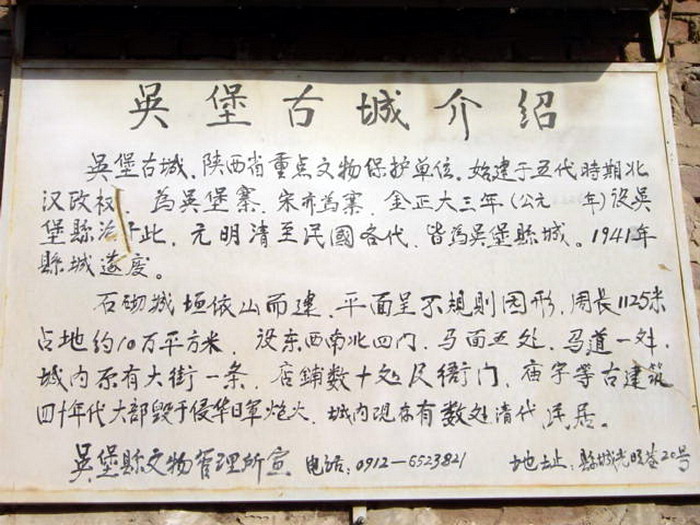 吳堡古城介绍
吳堡古城、陕西省重点文物保护单位。始建于五代時期北
汉政权，為吳堡寨、宋亦為寨，金正大三年(公元 年)设吳
堡縣治于此，元明清至民國各代，皆為吳堡縣城。1941年
縣城遂废。
石砌城垣依山而建，平面呈不規則园形，周長1125米
占地约10万平方米，设东西南北四门，马面五处，马道一处，
城内原有大街一条，店鋪数十处及衙门，庙宇等古建筑
四十年代大部毁于侵华日軍炮火，城内现存有数处清代民居。
吳堡縣文物管理所宣 电话：0912-6523821 地址：縣城光明巷20号